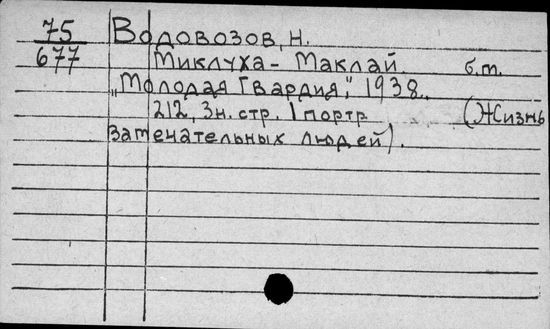 75 Водовозов, Н.
677 Миклуха - Маклай. б.т.
„Молодая Гвардия", 1938.
212, 3н. стр. 1 портр (Жизнь
замечательных людей).